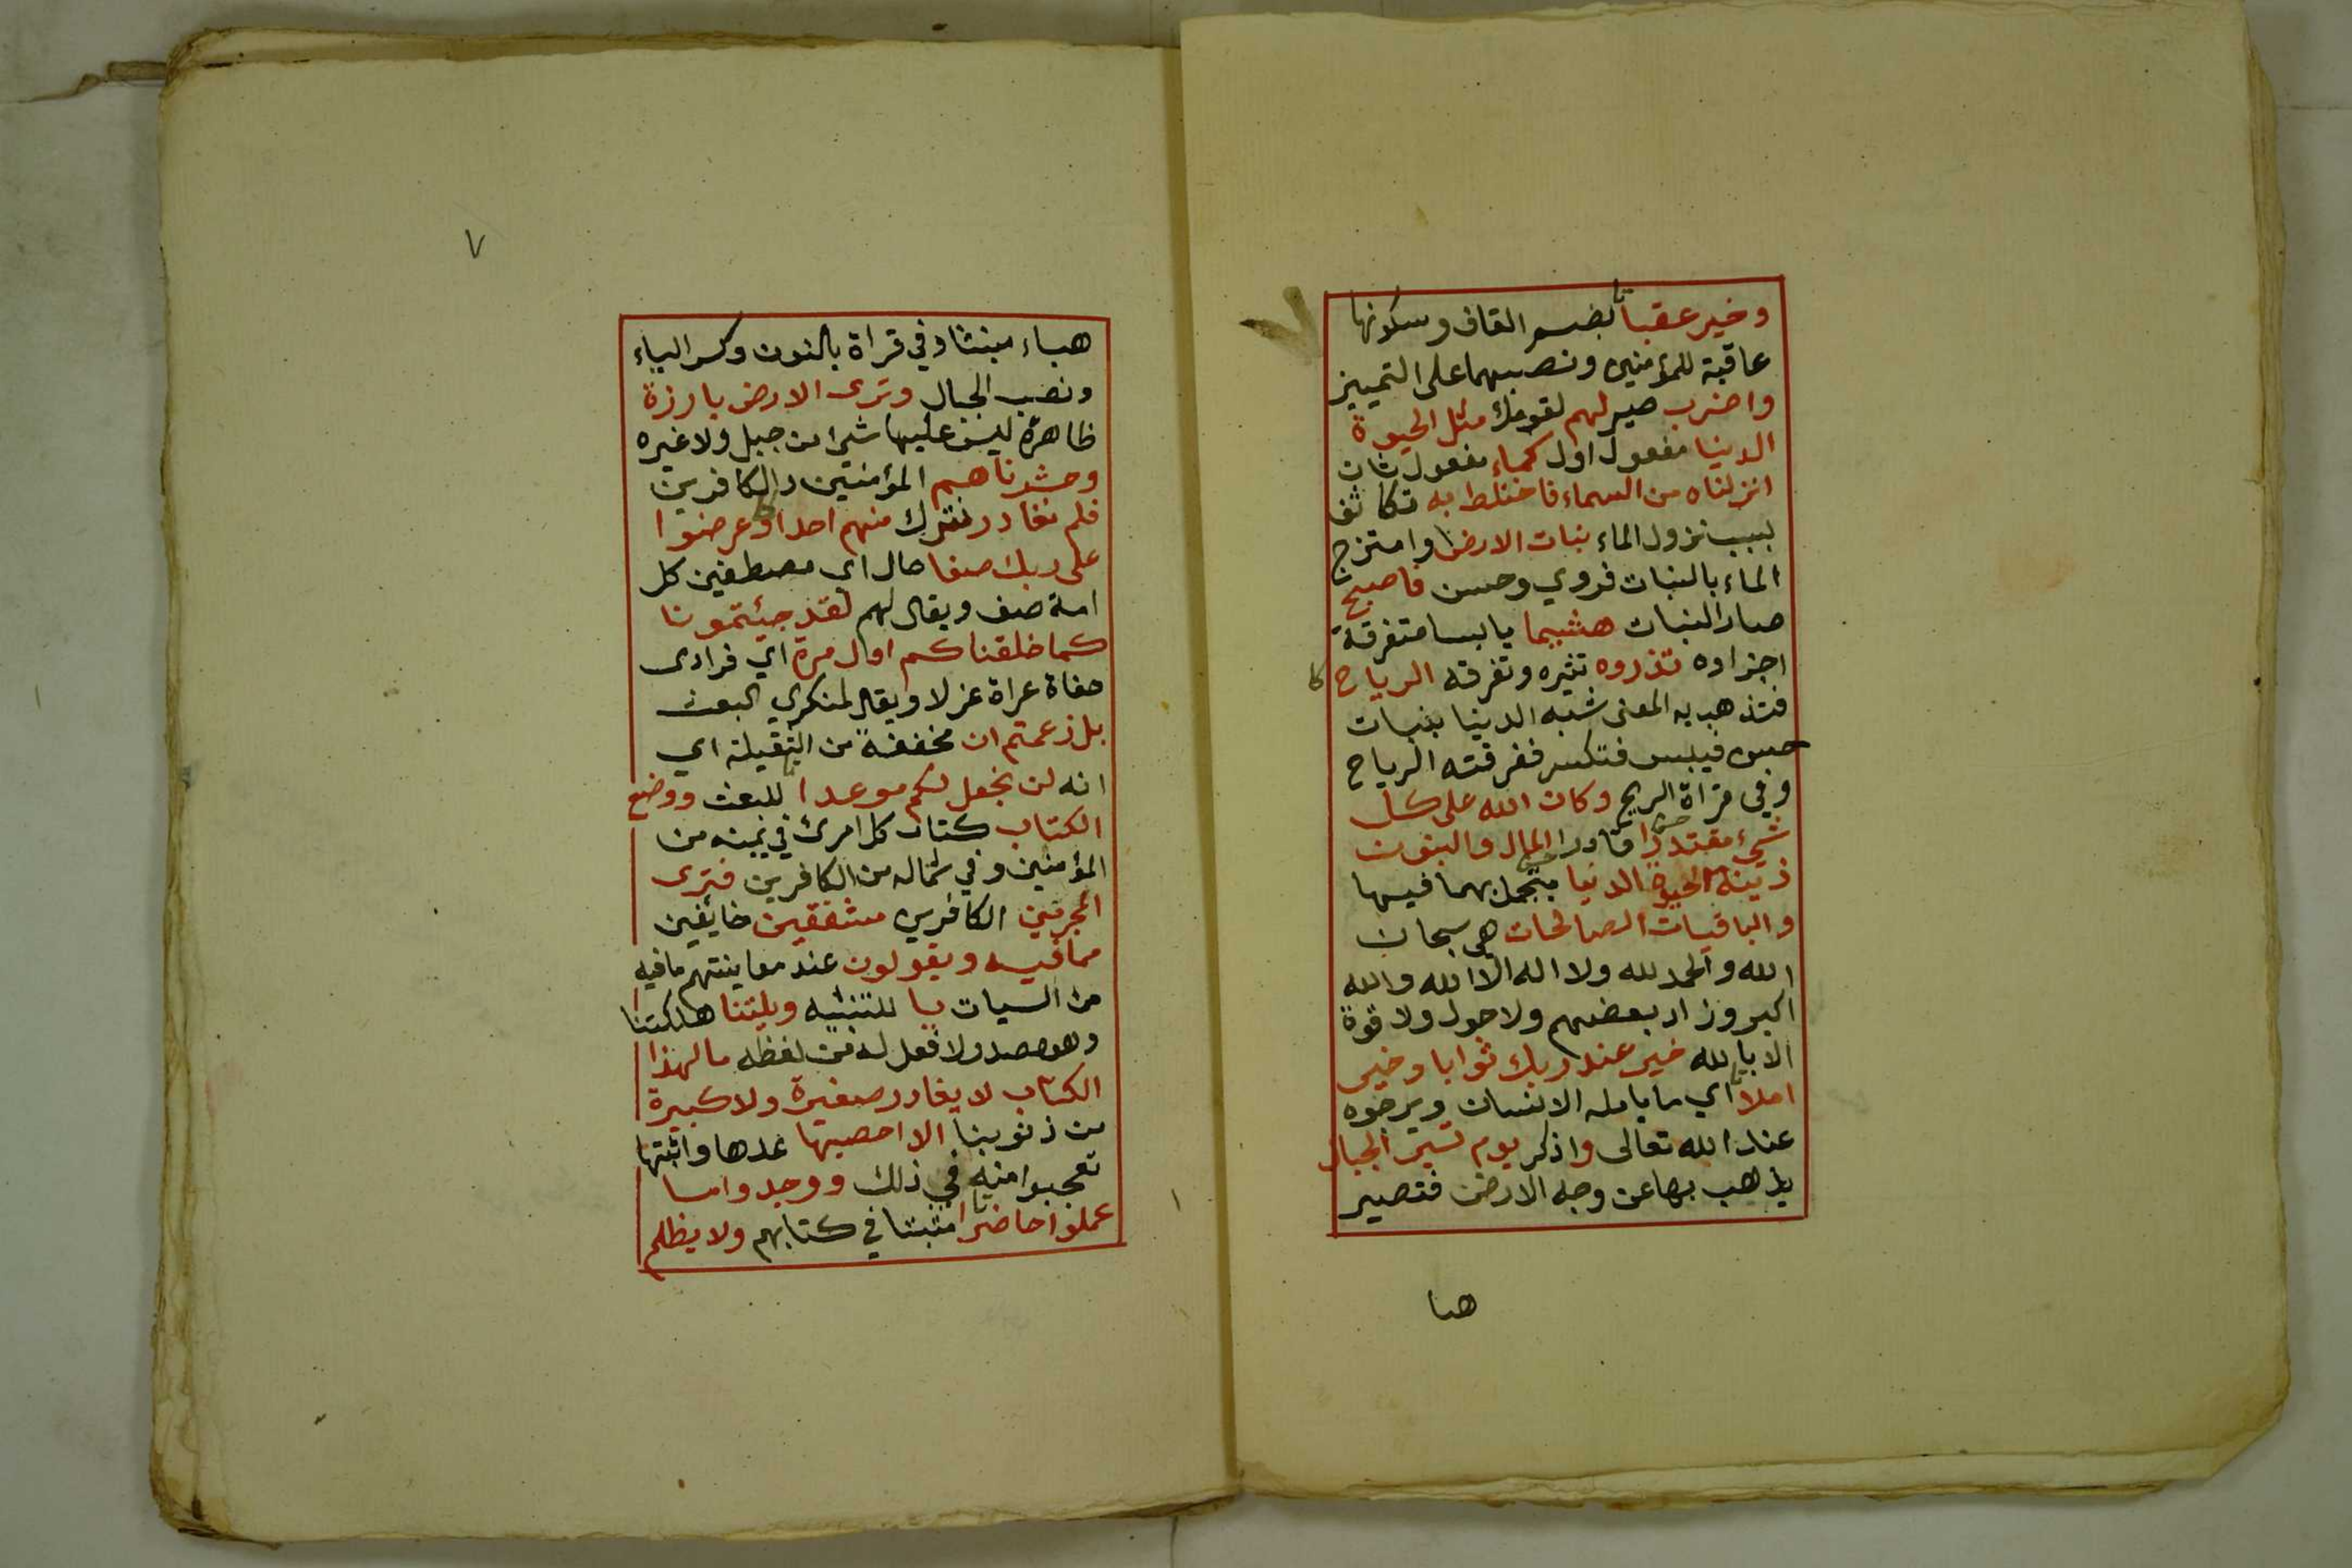 وخير عقبا بضم القاف وسكونها
عاقبة للمؤمنين ونصبهما على التمييز
واضرب صير لهم لقومك مثل الحيوة
الدنيا مفعول اول كماء مفعول ثان
انزلناه من السماء فاختلط به تكاثف
بسبب نزول الماء نبات الارض وامتزج
الماء بالنبات فروي وحسن فاصبح
صار النبات هشيما يابسا متفرقة
اجزاوه تذروه تثيره وتفرقه الرياح
فتذهب به المعنى شبه الدنيا بنبات
حسن فيبس فتكسر ففرقته الرياح
وفي قراة الريح وكان الله على كل
شيء مقتدرا قادرا المال والبنون
زينة الحيوة الدنيا يتجمل بهما فيها
والباقيات الصالحات هي سبحان
الله والحمد لله ولا اله الا الله والله
اكبر وزاد بعضهم ولا حول ولا قوة
الا بالله خير عند ربك ثوابا وخير
املا اي ما يامله الانسان ويرجوه
عند الله تعالى واذكر يوم تسير الجبال
يذهب بها عن وجه الارض فتصير
هبا
٧
هباء منبثا وفي قراة بالنون وكسر الياء
ونصب الجبال وترى الارض بارزة
ظاهرة ليس عليها شيء من جبل ولا غيره
وحشرناهم المؤمنين والكافرين
فلم نغادر نترك منهم احدا وعرضوا
على ربك صفا حال اي مصطفين كل
امة صف ويقال لهم لقد جيئتمونا
كما خلقناكم اول مرة اي فرادى
حفاة عراة غرلا ويقال لمنكري البعث
بل زعمتم ان مخففة من الثقيلة اي
انه لن نجعل لكم موعدا للبعث ووضع
الكتاب كتاب كل امرئ في يمينه من
المؤمنين وفي شماله من الكافرين فترى
المجرمين الكافرين مشفقين خايفين
مما فيه ويقولون عند معاينتهم ما فيه
من السيات يا للتنبيه ويلتنا هلكتنا
وهو مصدر لا فعل له من لفظه مال هذا
الكتاب لا يغادر صغيرة ولا كبيرة
من ذنوبنا الا احصيها عدها واثبتها
تعجبوا منه في ذلك ووجدوا ما
عملوا حاضرا مثبتا في كتابهم ولا يظلم